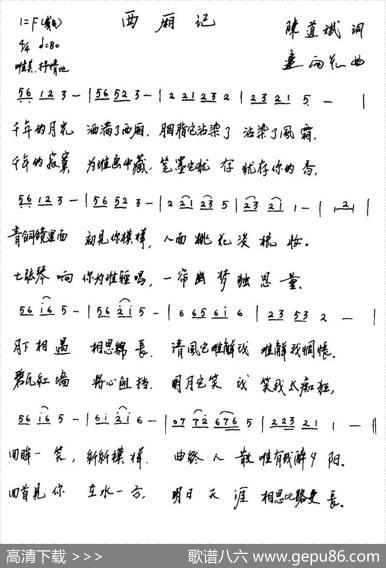 西厢记
1=F
4/4 ♩=80
陈道斌 词
孟雨花 曲
唯美、抒情地
56 12 3 - | 56 52 3 - | 2 21 23 2 | 23 21 5 - |
千年的月光 洒满了西厢, 胭脂也沾染了 沾染了风霜,
千年的寂寞 为谁画中藏, 笔墨也犹存 犹存你的香,
56 12 3 - | 56 52 3 - | 2 21 23 5 | 23 21 1 - |
青铜镜里面 初见你模样, 人面桃花淡梳妆。
七弦琴响 你为谁轻唱, 一帘幽梦独思量。
56 i6 5 - | 56 2i 5 - | 6 65 6i 6 | 23 53 2 - |
月下相遇 相思绵长, 清风它难解我 难解我惆怅,
碧瓦红墙 将心阻挡, 明月它笑我 笑我太痴狂,
56 i6 5 - | 6i 2i 6 - |
回眸一笑, 新新模样, 曲终人散唯有我醉夕阳。
回首见你 在水一方, 明日天涯 相思比路更长。
高清下载 >>>
歌谱八六 www.gepu86.com